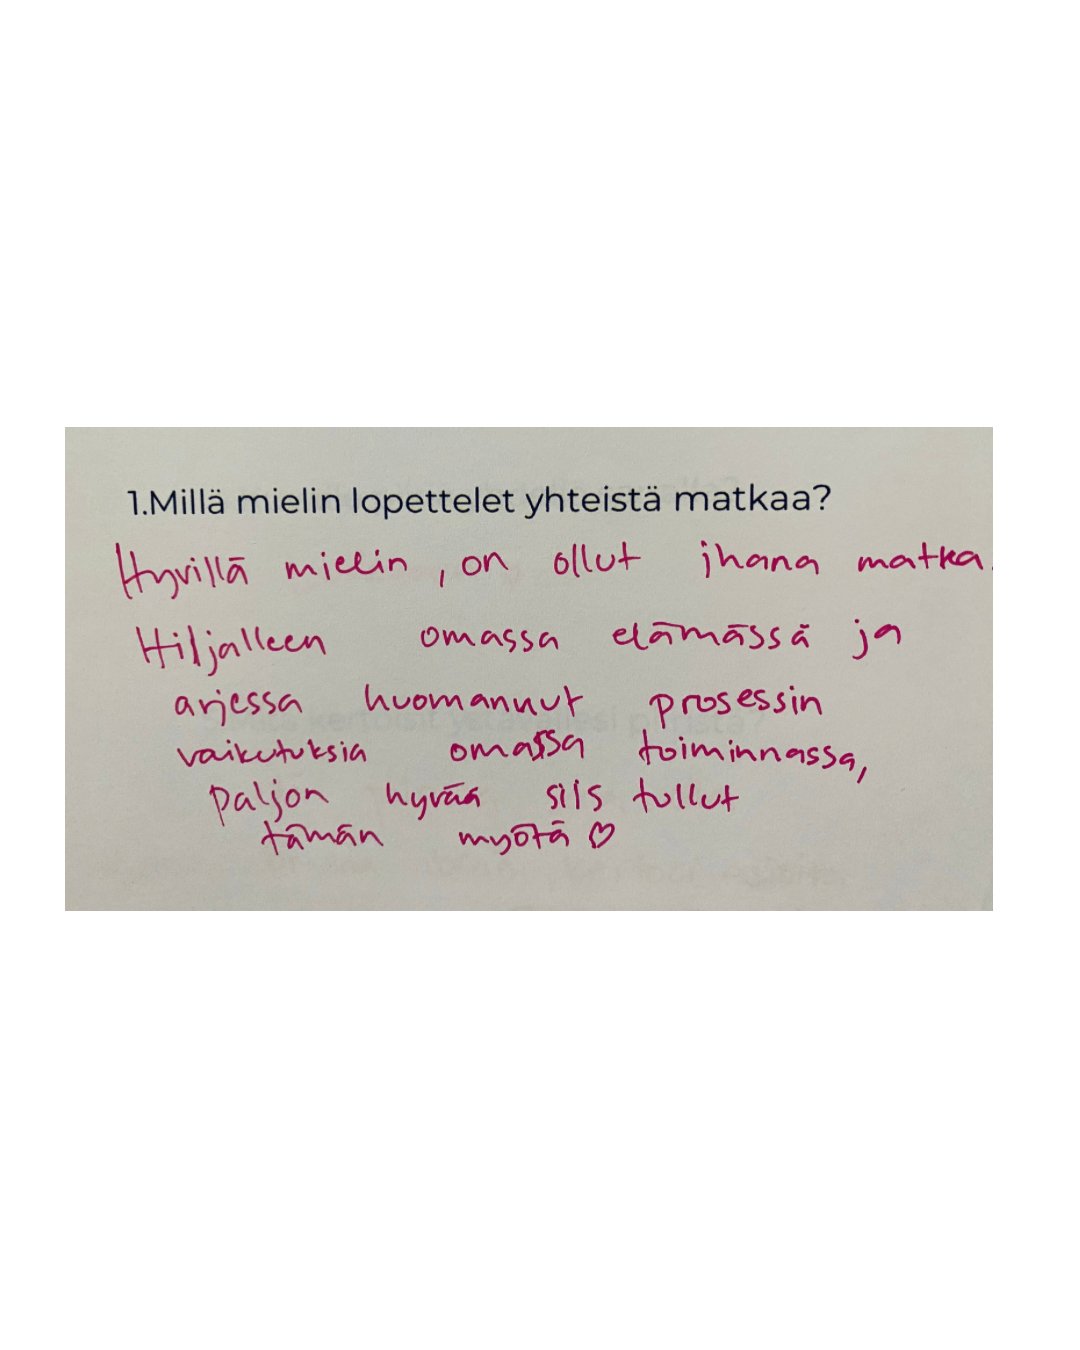 1.Millä mielin lopettelet yhteistä matkaa?
Hyvillä mielin, on ollut ihana matka.
Hiljalleen omassa elämässä ja
arjessa huomannut prosessin
vaikutuksia omassa toiminnassa,
paljon hyvää siis tullut
tämän myötä ♡